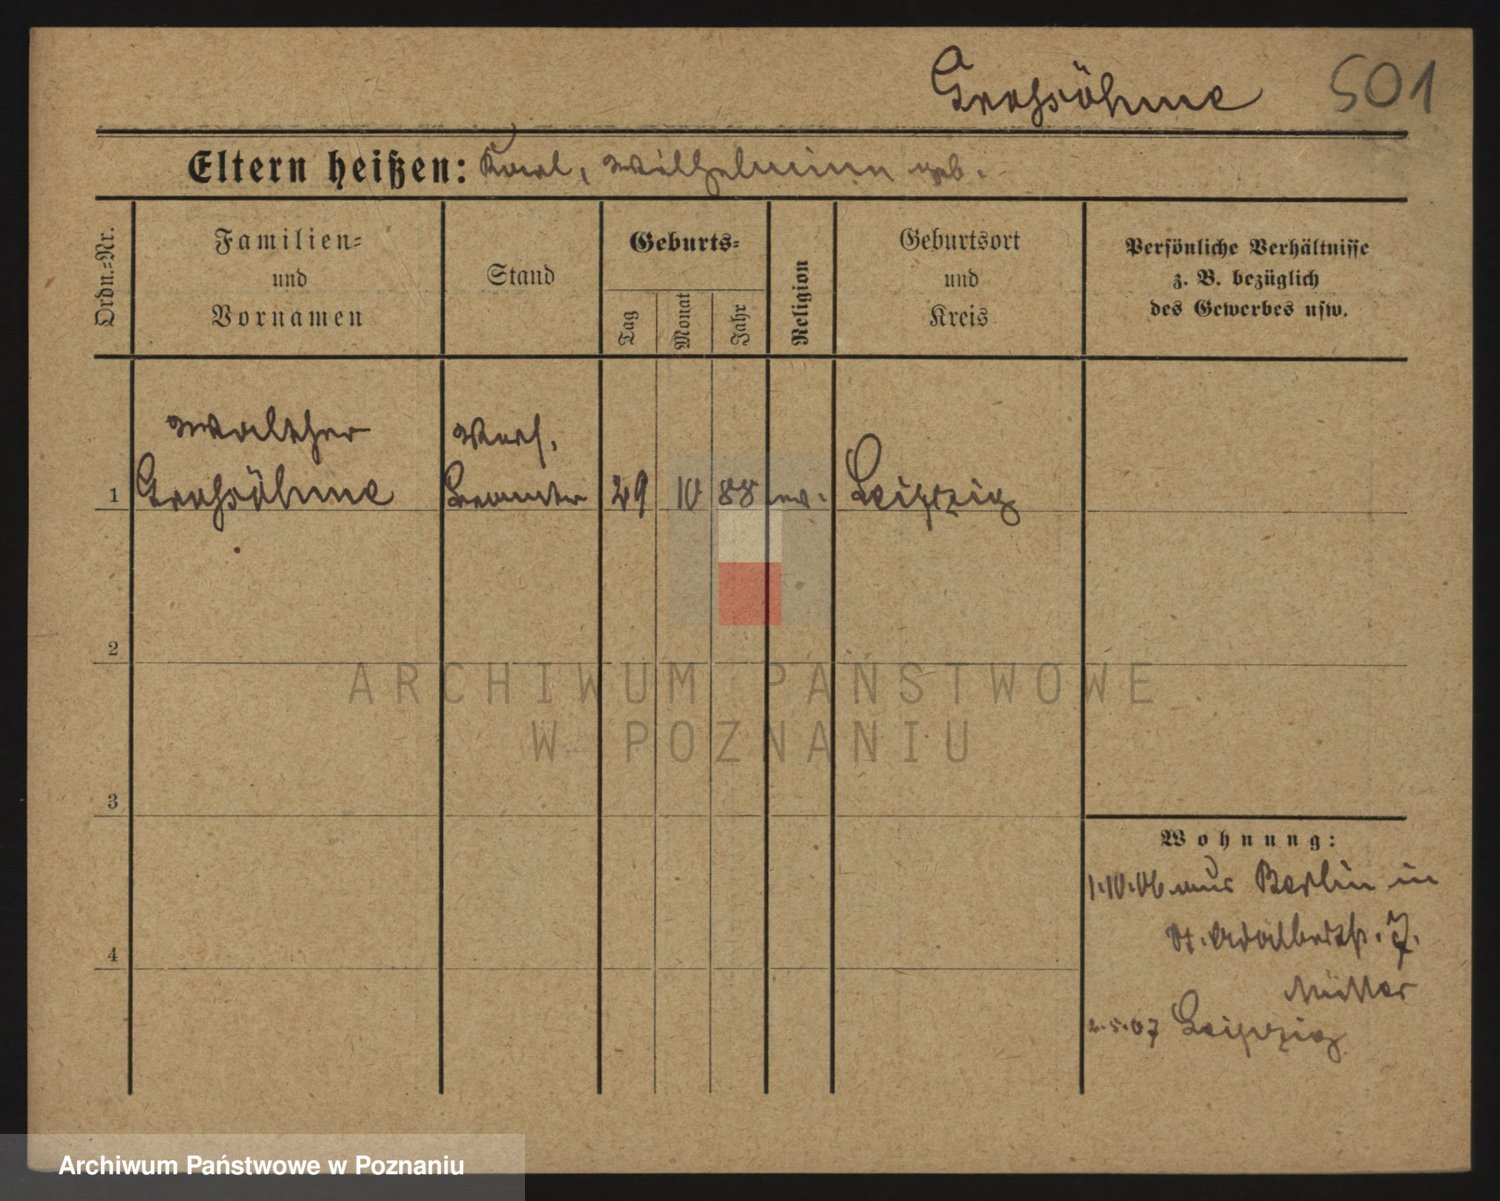 Grossöhme 501
Eltern heißen: Karl, Wilhelmine geb.
Ordn.=Nr.
Familien=
und
Vornamen
Stand
Geburts=
Tag
Monat
Jahr
Religion
Geburtsort
und
Kreis
Persönliche Verhältnisse
z. B. bezüglich
des Gewerbes usw.
Walther Vers.
1 Grossöhme Beamter 29 10 88 ev. Leipzig
2
ARCHIWUM PAŃSTWOWE
W POZNANIU
3
Wohnung:
1.10.06 aus Berlin in
St. Adalbertstr. 7.
4
Müller
2.5.07 Leipzig
Archiwum Państwowe w Poznaniu